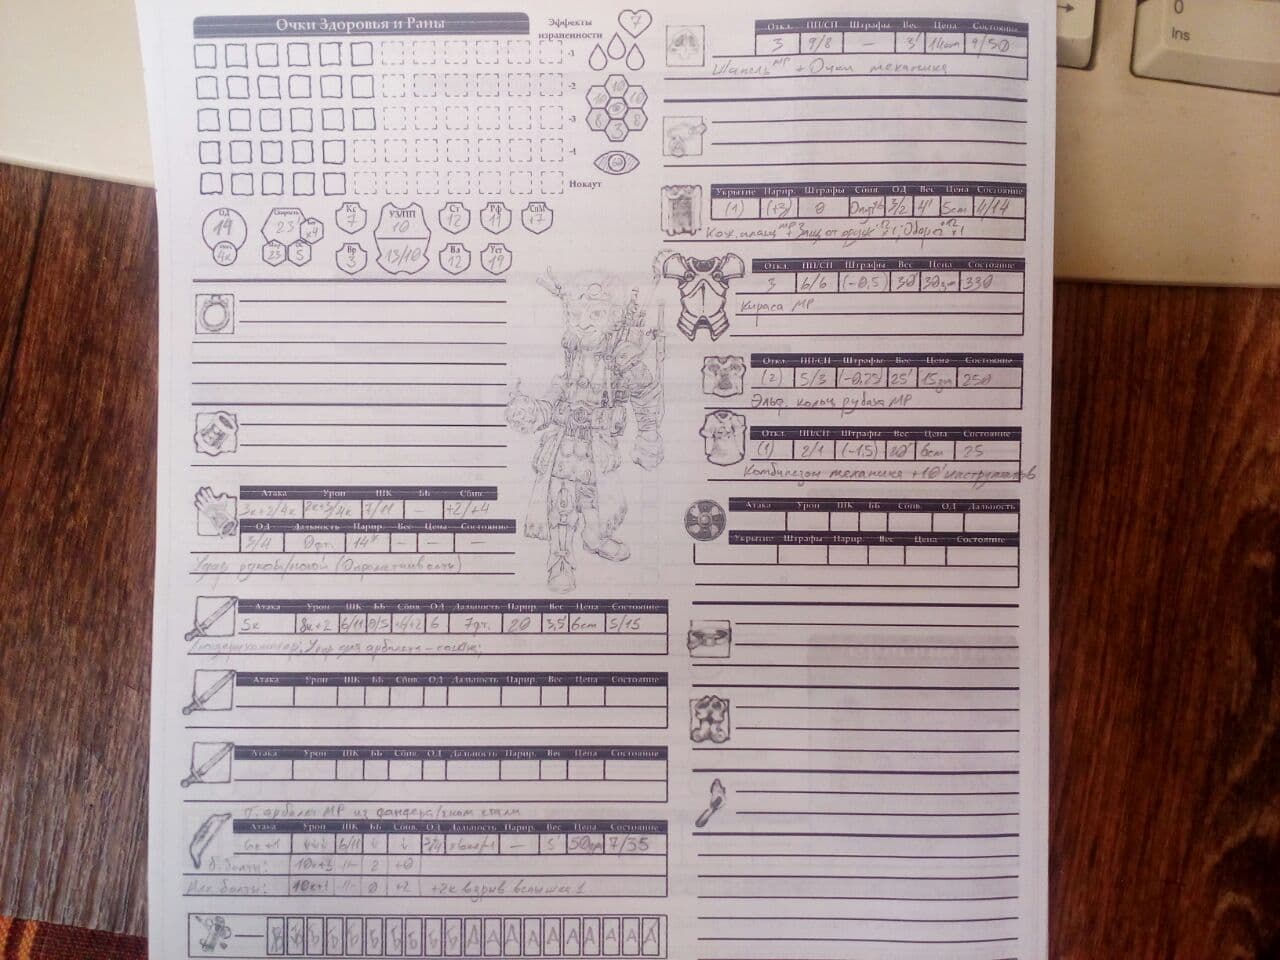 Очки Здоровья и Раны
Эффекты
израненности
7
-1
-2
-3
-4
Нокаут
10
10
10
8
8
3
ОД
14
4к
Скорость
23
x4
23
5
Кс
7
Вр
3
УЗ/ПП
10
13/10
Ст
12
Ва
12
Рф
11
Уст
19
СпМ
+7
Атака Урон ШК ББ Сбив.
3к+2/4к 2к+3/4к 7/11 - +2/+4
ОД Дальность Парир. Вес Цена Состояние
3/4 0фт. 14 - - -
Удар рукой/ногой
Атака Урон ШК ББ Сбив. ОД Дальность Парир. Вес Цена Состояние
5к 8к+2 6/11 0/5 +0/+2 6 7фт. 20 3,5' 6ст 5/15
Атака Урон ШК ББ Сбив. ОД Дальность Парир. Вес Цена Состояние
Атака Урон ШК ББ Сбив. ОД Дальность Парир. Вес Цена Состояние
арбалет МР из
Атака Урон ШК ББ Сбив. ОД Дальность Парир. Вес Цена Состояние
6к+1 6/11 - 5' 7/35
болты: 10к+3 -//- 2 +0
болты: 10к+1 -//- 0 +2 +2к взрыв вспышка 1
Б Б Б Б Б Б Б Б Б Д Д Д Д Д Д Д Д Д Д
Откл. ПП/СП Штрафы Вес Цена Состояние
3 9/8 - 3' 14зт 9/50
Шапель МР + Очки механика
Укрытие Парир. Штрафы Сбив. ОД Вес Цена Состояние
(1) (+3) 0 3/2 4' 5ст 4/14
Кож. плащ МР
Откл. ПП/СП Штрафы Вес Цена Состояние
3 6/6 (-0,5) 30' 30зт 330
Кираса МР
Откл. ПП/СП Штрафы Вес Цена Состояние
(2) 5/3 (-0,25) 25' 15зт 250
Эльф. кольч. рубаха МР
Откл. ПП/СП Штрафы Вес Цена Состояние
(1) 2/1 (-1,5) 20' 6ст 25
Комбинезон механика +10' инструментов
Атака Урон ШК ББ Сбив. ОД Дальность
Укрытие Штрафы Парир. Вес Цена Состояние
0
Ins